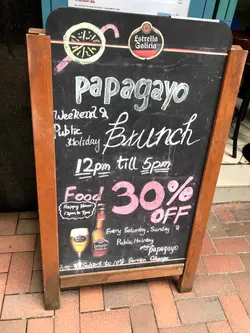 Estrella
Galicia
papagayo
Weekend &
Public
Holiday
Brunch
12pm till 5pm
Food
30%
OFF
Happy Hour
Every Saturday, Sunday &
Public Holiday
Papagayo
Subject to 10% Service Charge